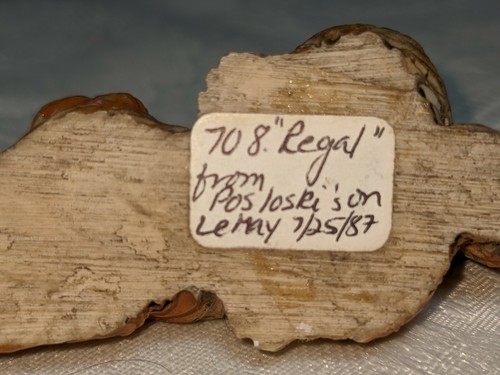 708. "Regal"
from
Posloski's on
LeMay 7/25/87